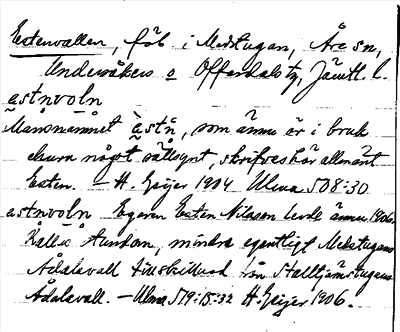 Estenvallen, fäb i Medstugan, Åre sn,
Undersåkers o Offerdals tg, Jämtl. l.
astnvoln
Mansnamnet àstn, som ännu är i bruk
ehuru något sällsynt, skrifves här allmänt
Esten. – H. Geijer 1904 Ulma 508:30
astnvoln Egaren Esten Nilsson levde ännu 1906.
Kallas stundom, mindre egentligt Medstugans
Ådalsvall till skillnad från Stalltjärnstugans
Ådalsvall. – Ulma 519:18:32 H Geijer 1906.